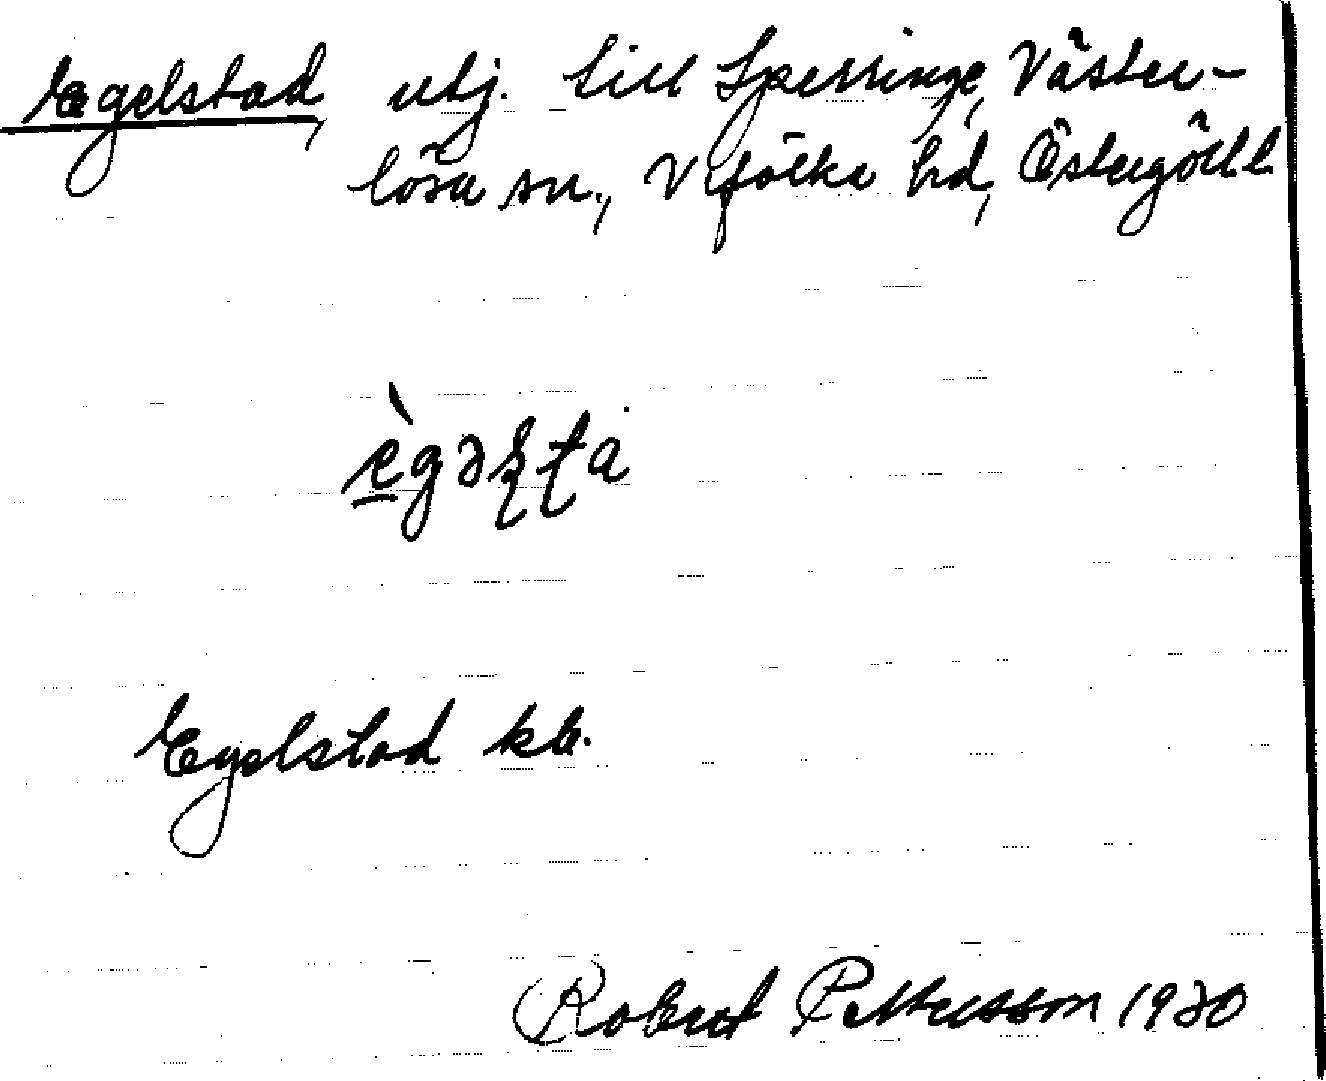 Egelstad, utj. till Sperringe, Väster-
lösa sn., Vifolka hd, Östergötl.
ègəʂʈa
Egelstad kb.
Robert Pettersson 1930